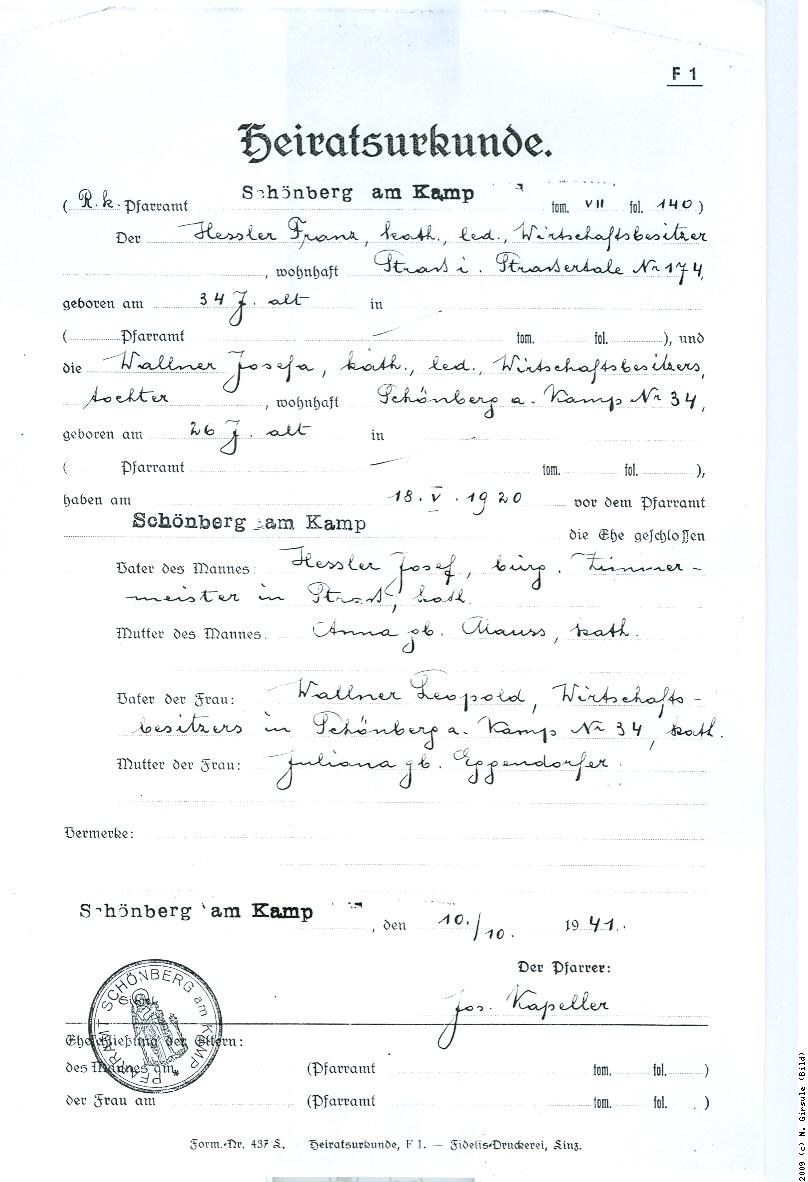 F 1
Heiratsurkunde.
( R. k. Pfarramt Schönberg am Kamp tom. VII fol. 140 )
Der Hessler Franz, kath., led., Wirtschaftsbesitzer
, wohnhaft Strass i. Strassertale Nr 174,
geboren am 34 J. alt in
( Pfarramt tom. fol. ), und
die Wallner Josefa, kath., led., Wirtschaftsbesitzers,
tochter , wohnhaft Schönberg a. Kamp Nr 34,
geboren am 26 J. alt in
( Pfarramt tom. fol. ),
haben am 18. V. 1920 vor dem Pfarramt
Schönberg am Kamp die Ehe geschlossen
Vater des Mannes: Hessler Josef, bürg. Zimmer-
meister in Strass, kath.
Mutter des Mannes. Anna gb. Mauss, kath.
Vater der Frau: Wallner Leopold, Wirtschafts-
besitzers in Schönberg a. Kamp Nr 34, kath.
Mutter der Frau: Juliana gb. Eggendorfer.
Vermerke:
Schönberg am Kamp , den 10./10. 1941.
Der Pfarrer:
Jos. Kapeller
PFARRAMT SCHÖNBERG am KAMP
Eheschließung der Eltern:
des Mannes am (Pfarramt tom. fol. )
der Frau am (Pfarramt tom. fol. )
Form.-Nr. 437 L. Heiratsurkunde, F 1. — Fidelis-Druckerei, Linz.
2009 (c) N. Girsule (Bild)